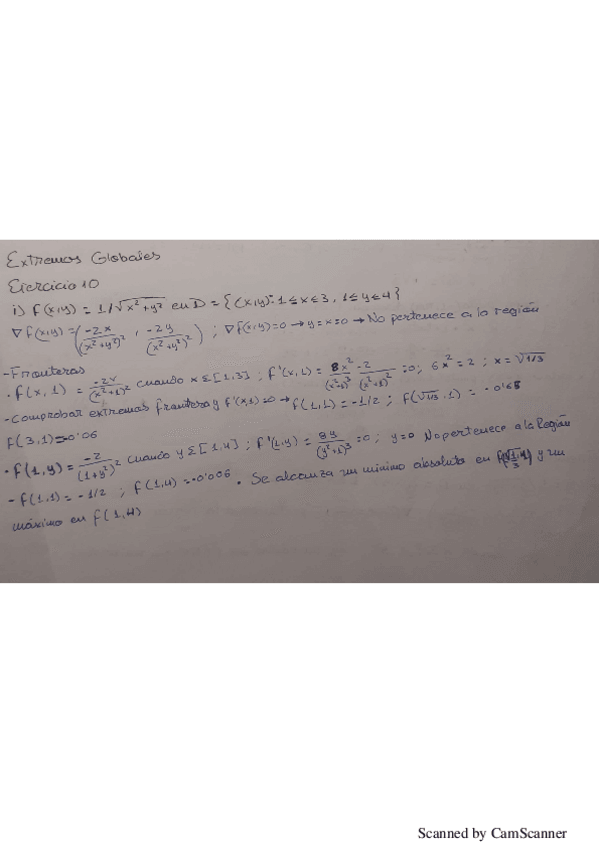 Extremos Globales
Ejercicio 10
i) f(x,y) = 1/√x²+y² en D = {(x,y): 1≤x≤3, 1≤y≤4}
∇f(x,y) = (-2x/(x²+y²)², -2y/(x²+y²)²) ; ∇f(x,y)=0 → y=x=0 → No pertenece a la región
-Fronteras
· f(x,1) = -2x/(x²+1)² cuando x ε [1,3] ; f'(x,1) = 8x²/(x²+1)³ -2/(x²+1)² =0; 6x²=2 ; x=√1/3
-Comprobar extremos frontera y f'(x,1)=0 → f(1,1)=-1/2 ; f(√1/3,1) = -0'65
f(3,1)=-0'06
· f(1,y) = -2/(1+y²)² cuando y ε [1,4] ; f'(1,y) = 8y/(y²+1)³ =0 ; y=0 No pertenece a la Región
- f(1,1) = -1/2 ; f(1,4) = -0'006 . Se alcanza un mínimo absoluto en y un
máximo en f(1,4)
Scanned by CamScanner